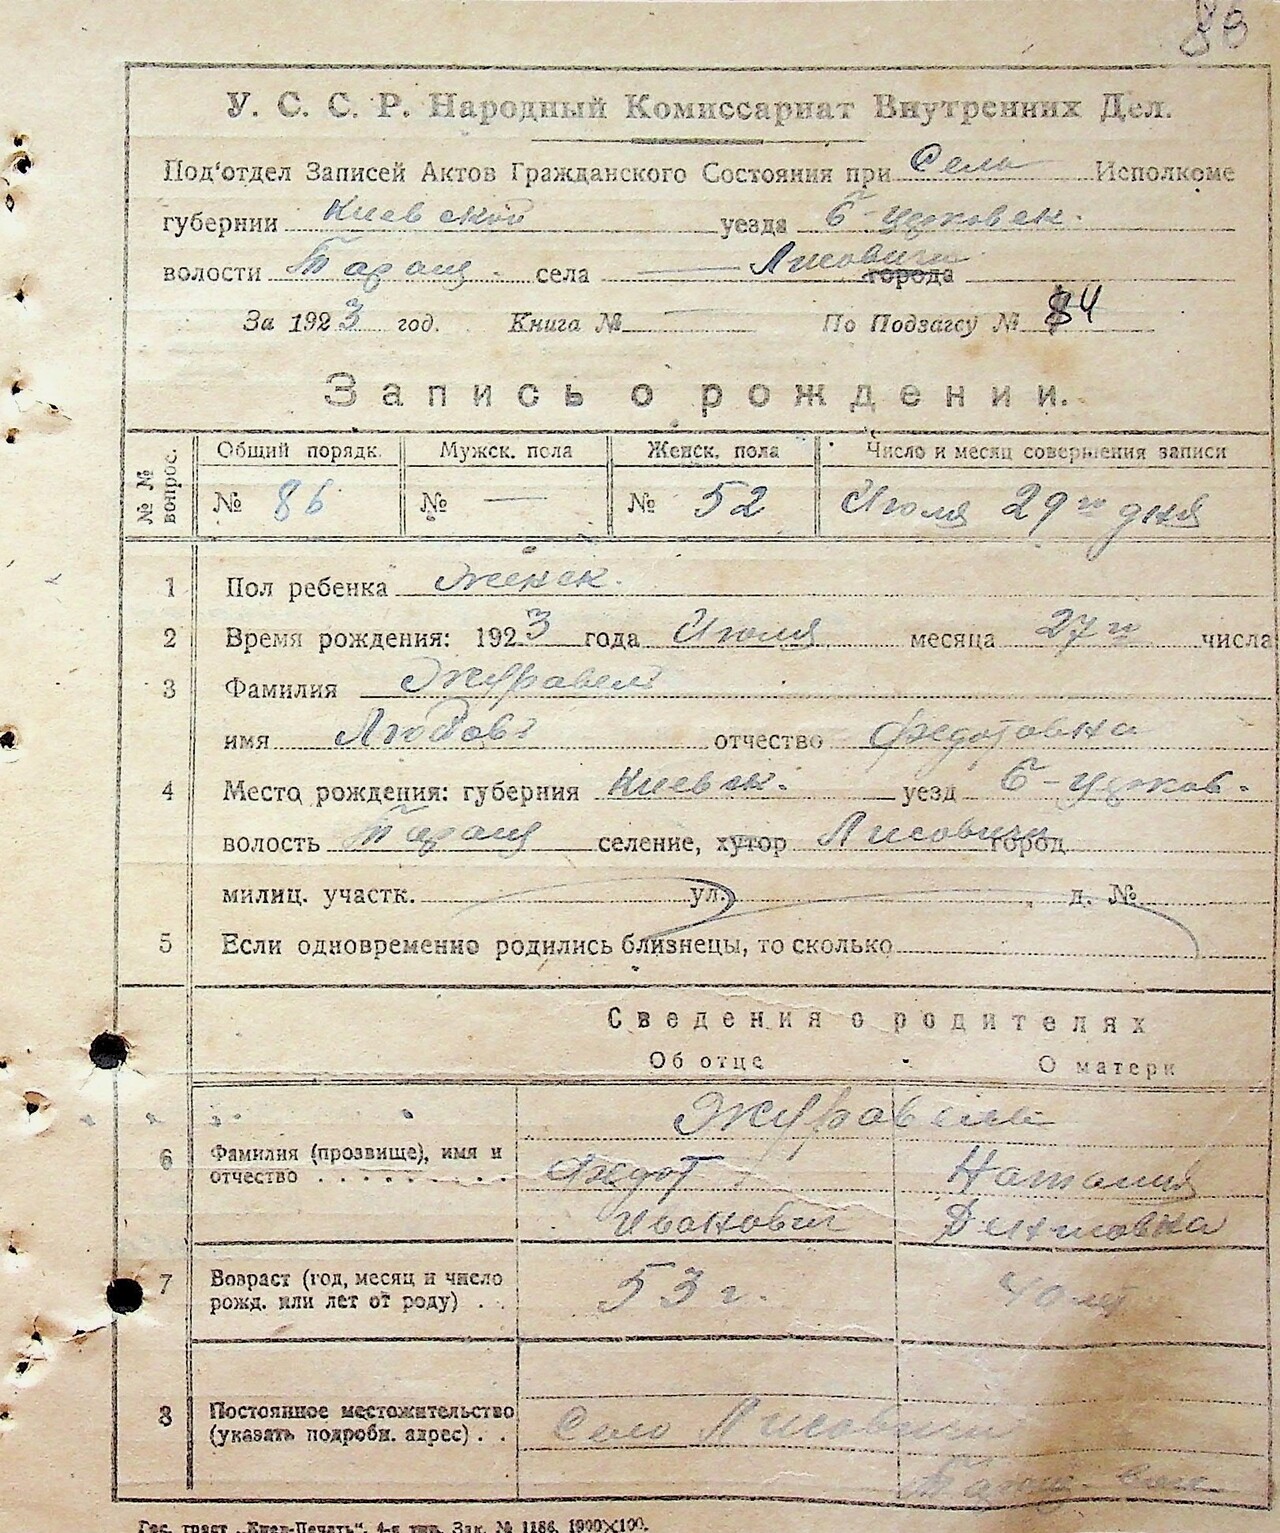 88
У. С. С. Р. Народный Комиссариат Внутренних Дел.
Под'отдел Записей Актов Гражданского Состояния при Сель Исполкоме
губернии Киевской уезда Б-церковск.
волости Таращ. села — Лисовичи города
За 1923 год. Книга № — По Подзагсу № 84
Запись о рождении.
№ № вопрос. Общий порядк. Мужск. пола Женск. пола Число и месяц совершения записи
№ 86 № — № 52 Июля 29го дня
1 Пол ребенка Женск.
2 Время рождения: 1923 года Июля месяца 27го числа
3 Фамилия Журавель
имя Любовь отчество Федотовна
4 Место рождения: губерния Киевск. уезд Б-церков.
волость Таращ селение, хутор Лисовичи город
милиц. участк. ул. д. №
5 Если одновременно родились близнецы, то сколько
Сведения о родителях
Об отце О матери
Журавель
6 Фамилия (прозвище), имя и отчество . . . . . . . . . Федот Наталия
Иванович
7 Возраст (год, месяц и число рожд. или лет от роду) . . 53 г. 40 лет
8 Постоянное местожительство (указать подробн. адрес) . . Село Лисовичи
Таращ. вол.
Гос. трест „Киев-Печать", 4-я тип. Зак. № 1186. 1000×100.